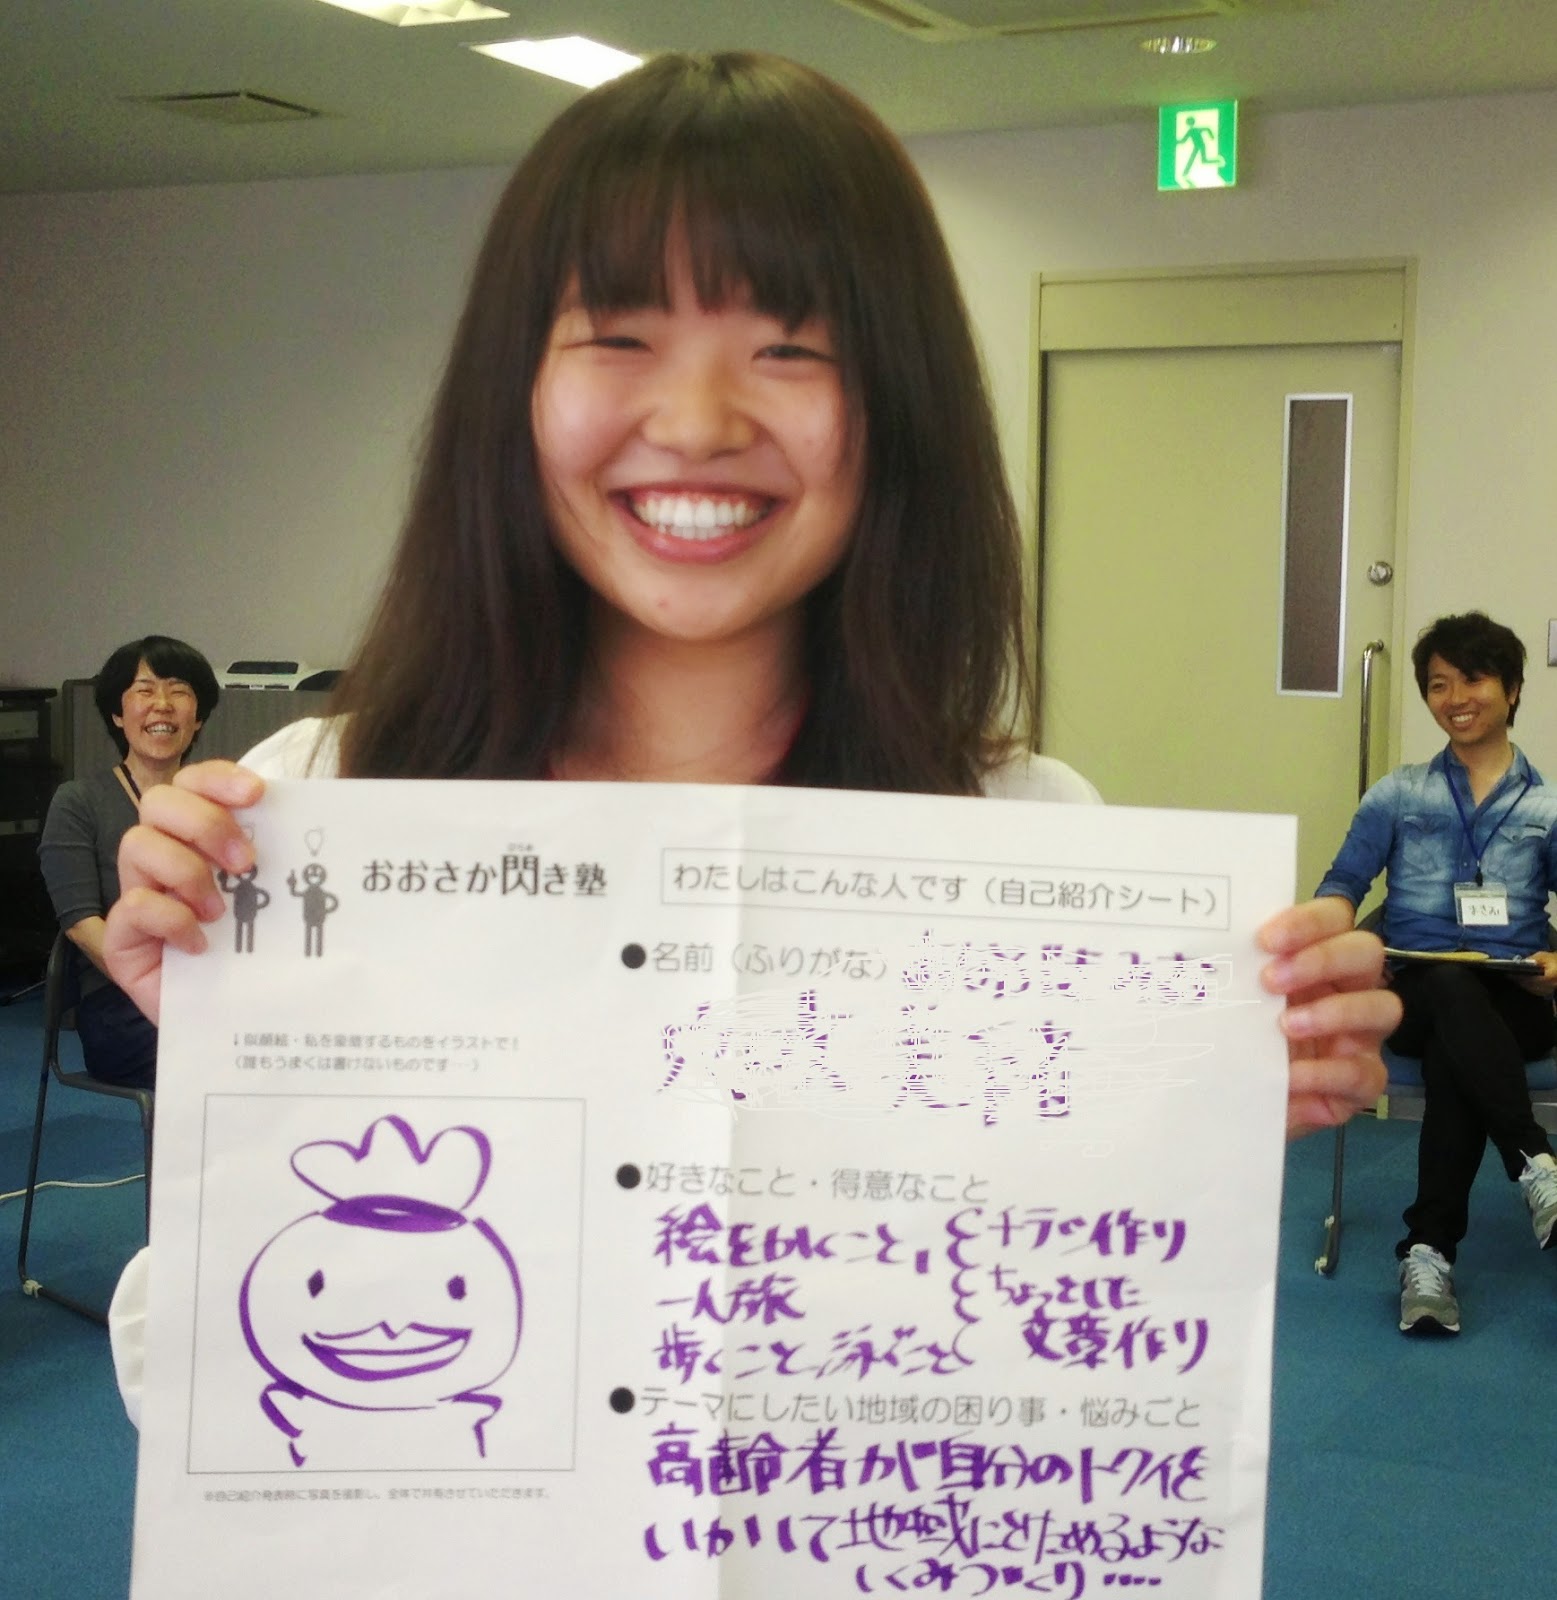 ひらめ
おおさか閃き塾
わたしはこんな人です（自己紹介シート）
●名前（ふりがな）
↓似顔絵・私を象徴するものをイラストで！
（誰もうまくは書けないものです…）
●好きなこと・得意なこと
絵をかくこと、チラシ作り
一人旅 ちょっとした
歩くこと、泳ぐこと 文章作り
●テーマにしたい地域の困り事・悩みごと
高齢者が自分のトクイを
いかして地域にとけこめるような
しくみづくり....
※自己紹介発表時に写真を撮影し、全体で共有させていただきます。